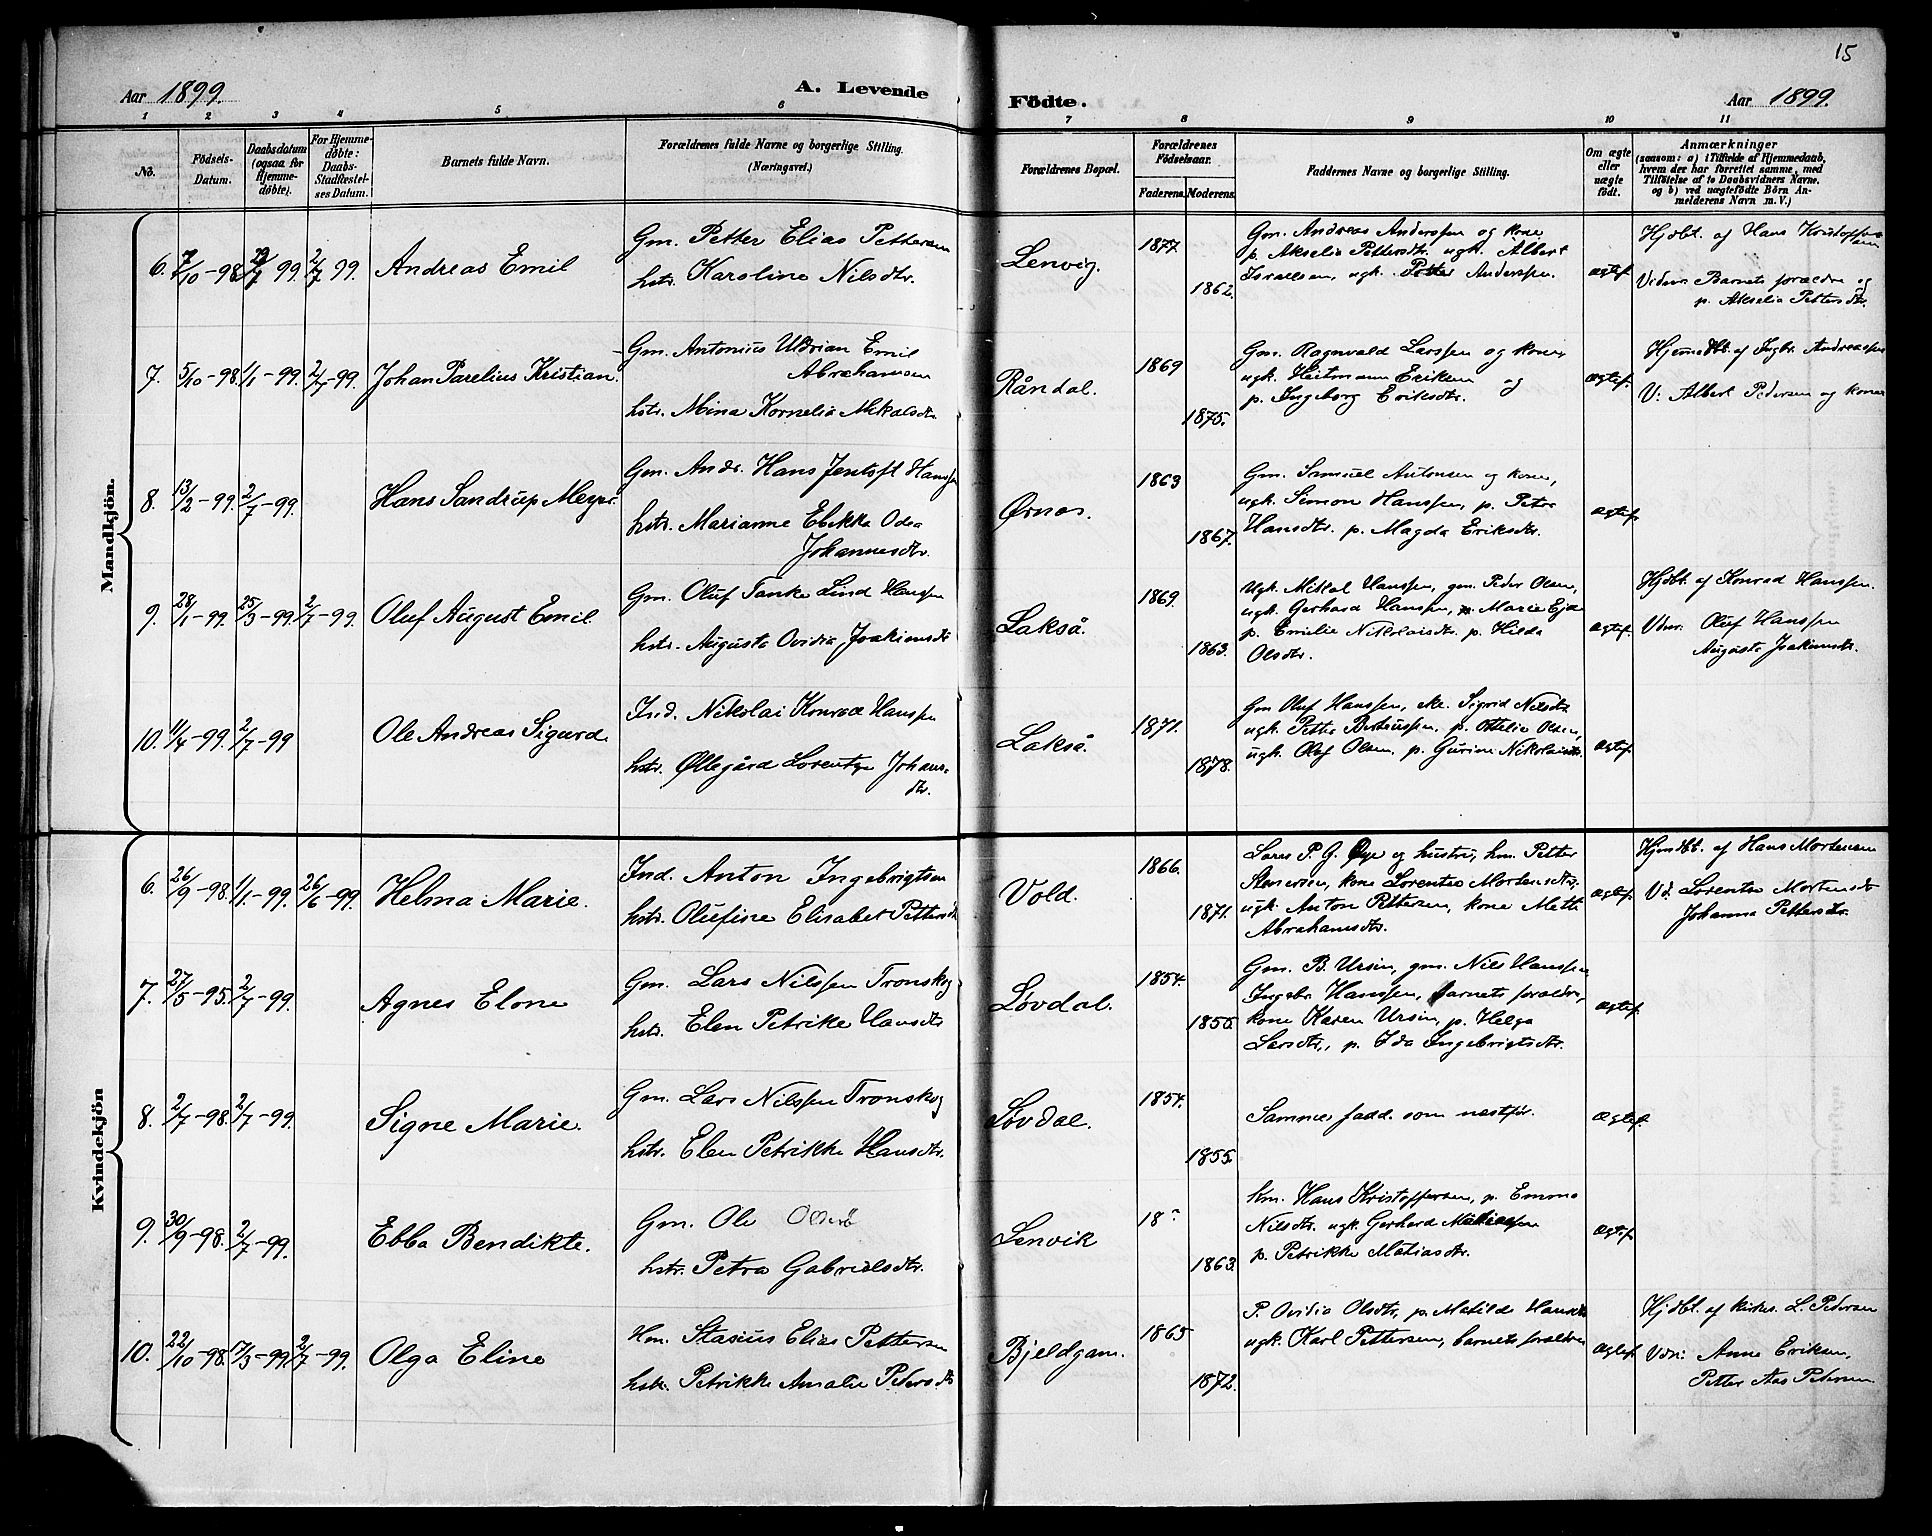 15
Aar 1899.
A. Levende
Fødte.
Aar 1899.
1 2 3 4 5 6 7 8 9 10 11
No.
Fødsels-
Datum.
Daabsdatum
(ogsaa for
Hjemme-
døbte).
For Hjemme-
døbte:
Daabs-
Stadfæstel-
ses Datum.
Barnets fulde Navn.
Forældrenes fulde Navne og borgerlige Stilling.
(Næringsvei.)
Forældrenes Bopæl.
Forældrenes
Fødselsaar.
Faderens. Moderens.
Faddernes Navne og borgerlige Stilling.
Om ægte
eller
uægte
født.
Anmærkninger
(saasom: a) i Tilfælde af Hjemmedaab,
hvem der har forrettet samme, med
Tilføielse af to Daabsvidners Navne.
og b) ved uægtefødte Børn An-
melderens Navn m. V.)
Mandkjön.
6. 7/10-98 2/7 99. Andreas Emil
Gm. Petter Elias Pettersen
hstr. Karoline Nilsdtr.
Lenvig.
1877
1862.
Gm. Andreas Anderssen og kone
p. Akselia Pettersdtr. ugk. Albert
Israelsen, ugk. Petter Anderssen.
ægtef.
Hjdbt. af Hans Kristoffersen
Vidner Barnets forældre og
p. Akselia Pettersdtr.
7. 5/10-98. 1/1-99. 2/7-99. Johan Parelius Kristian
Gm. Antonius Uldrian Emil
Abrahamsen
hstr. Mina Kornelia Mikalsdtr.
Råndal.
1869
1875.
Gm. Ragnvald Larssen og kone
ugk. Heitmann Eriksen og
p. Ingeborg Eriksdtr.
ægtef.
Hjemdbt. af Ingbr. Andreassen
V: Albert Pedersen og kone
8. 13/2-99. 2/7-99. Hans Sandrup Meyer.
Gm. Andr. Hans Jentoft Hanssen
hstr. Marianne Ebekke Oda
Johannesdtr.
Ørnes.
1863
1867.
Gm. Samuel Antonsen og kone,
ugk. Simon Hanssen, p. Petra
Hansdtr. p. Magda Eriksdtr.
ægtef.
9. 28/1-99. 25/3-99. 2/7-99. Oluf August Emil
Gm. Oluf Tanke Lind Hanssen
hstr. Augusta Ovidia Joakimsdtr
Lakså.
1869.
1863.
Ugk. Mikal Hanssen, gm. Peder Olsen,
ugk. Gerhard Hanssen, Marie
p. Emelie Nikolaisdtr. p. Hilda
Olsdtr.
ægtef.
Hjdbt. af Konrad Hanssen.
Vdnr. Oluf Hanssen
Augusta Joakimsdtr.
10. 11/4-99. 2/7-99 Ole Andreas Sigurd.
Ind. Nikolai Konrad Hanssen
hstr. Øllegård Lorentze Johans-
dtr.
Lakså.
1871.
1878.
Gm Oluf Hanssen, Sigrid Nilsdtr
ugk. Petter Berteussen, p. Otelie Olsen,
ugk. Oluf Olsen, p. Gurine Nikolaisdtr.
ægtef.
Kvindekjön
6. 26/9-98. 1/1-99. 26/6-99. Helma Marie.
Ind. Anton Ingebrigtsen
hstr. Olufine Elisabet Pettersdtr
Vold.
1866.
1871.
Lars P. G. Øye og hustru, hm. Petter
kone Lorentse Mortensdtr.
ugk. Anton Pettersen, kone Mette
Abrahamsdtr.
ægtef.
Hjmdbt. af Hans Mortensen
Vd. Lorentse Mortensdtr
Johanna Pettersdtr.
7. 27/5-95. 2/7-99. Agnes Elone
Gm. Lars Nilssen Tronskog
hstr. Elen Petrike Hansdtr
Løvdal.
1854.
1855.
Gm. B. Ursin, gm. Nils Hanssen,
Ingebr. Hanssen, barnets forældre,
kone Karen Ursin, p. Helga
Larsdtr., p. Ida Ingebrigtsdtr.
ægtef.
8. 2/7-98. 2/7-99. Signe Marie.
Gm. Lars Nilssen Tronskog
hstr. Elen Petrikke Hansdtr.
Løvdal.
1854.
1855.
Samme fadd. som næstfør.
Ægtef.
9. 30/9-98. 2/7-99. Ebba Bendikte.
Gm. Ole
hstr. Petra Gabrielsdtr.
Lenvik
18
1863.
hm. Hans Kristoffersen, p. Emma
Nilsdtr. ugk. Gerhard Matiassen
p. Petrikke Matiasdtr.
ægtef.
10. 22/10-98. 17/3-99. 2/7-99. Olga Eline
Hm. Stasius Elias Pettersen
hstr. Petrikke Amalie Pedersdtr
Bjeldgam.
1865
1872.
P. Ovidia Olsdtr, p. Matilde Hansdtr
ugk. Karl Pettersen, barnets forældre
Ægtef.
Hjdbt. af kirkes. L. Pedersen
Vdn: Anne Eriksen,
Petter Aas Petersen